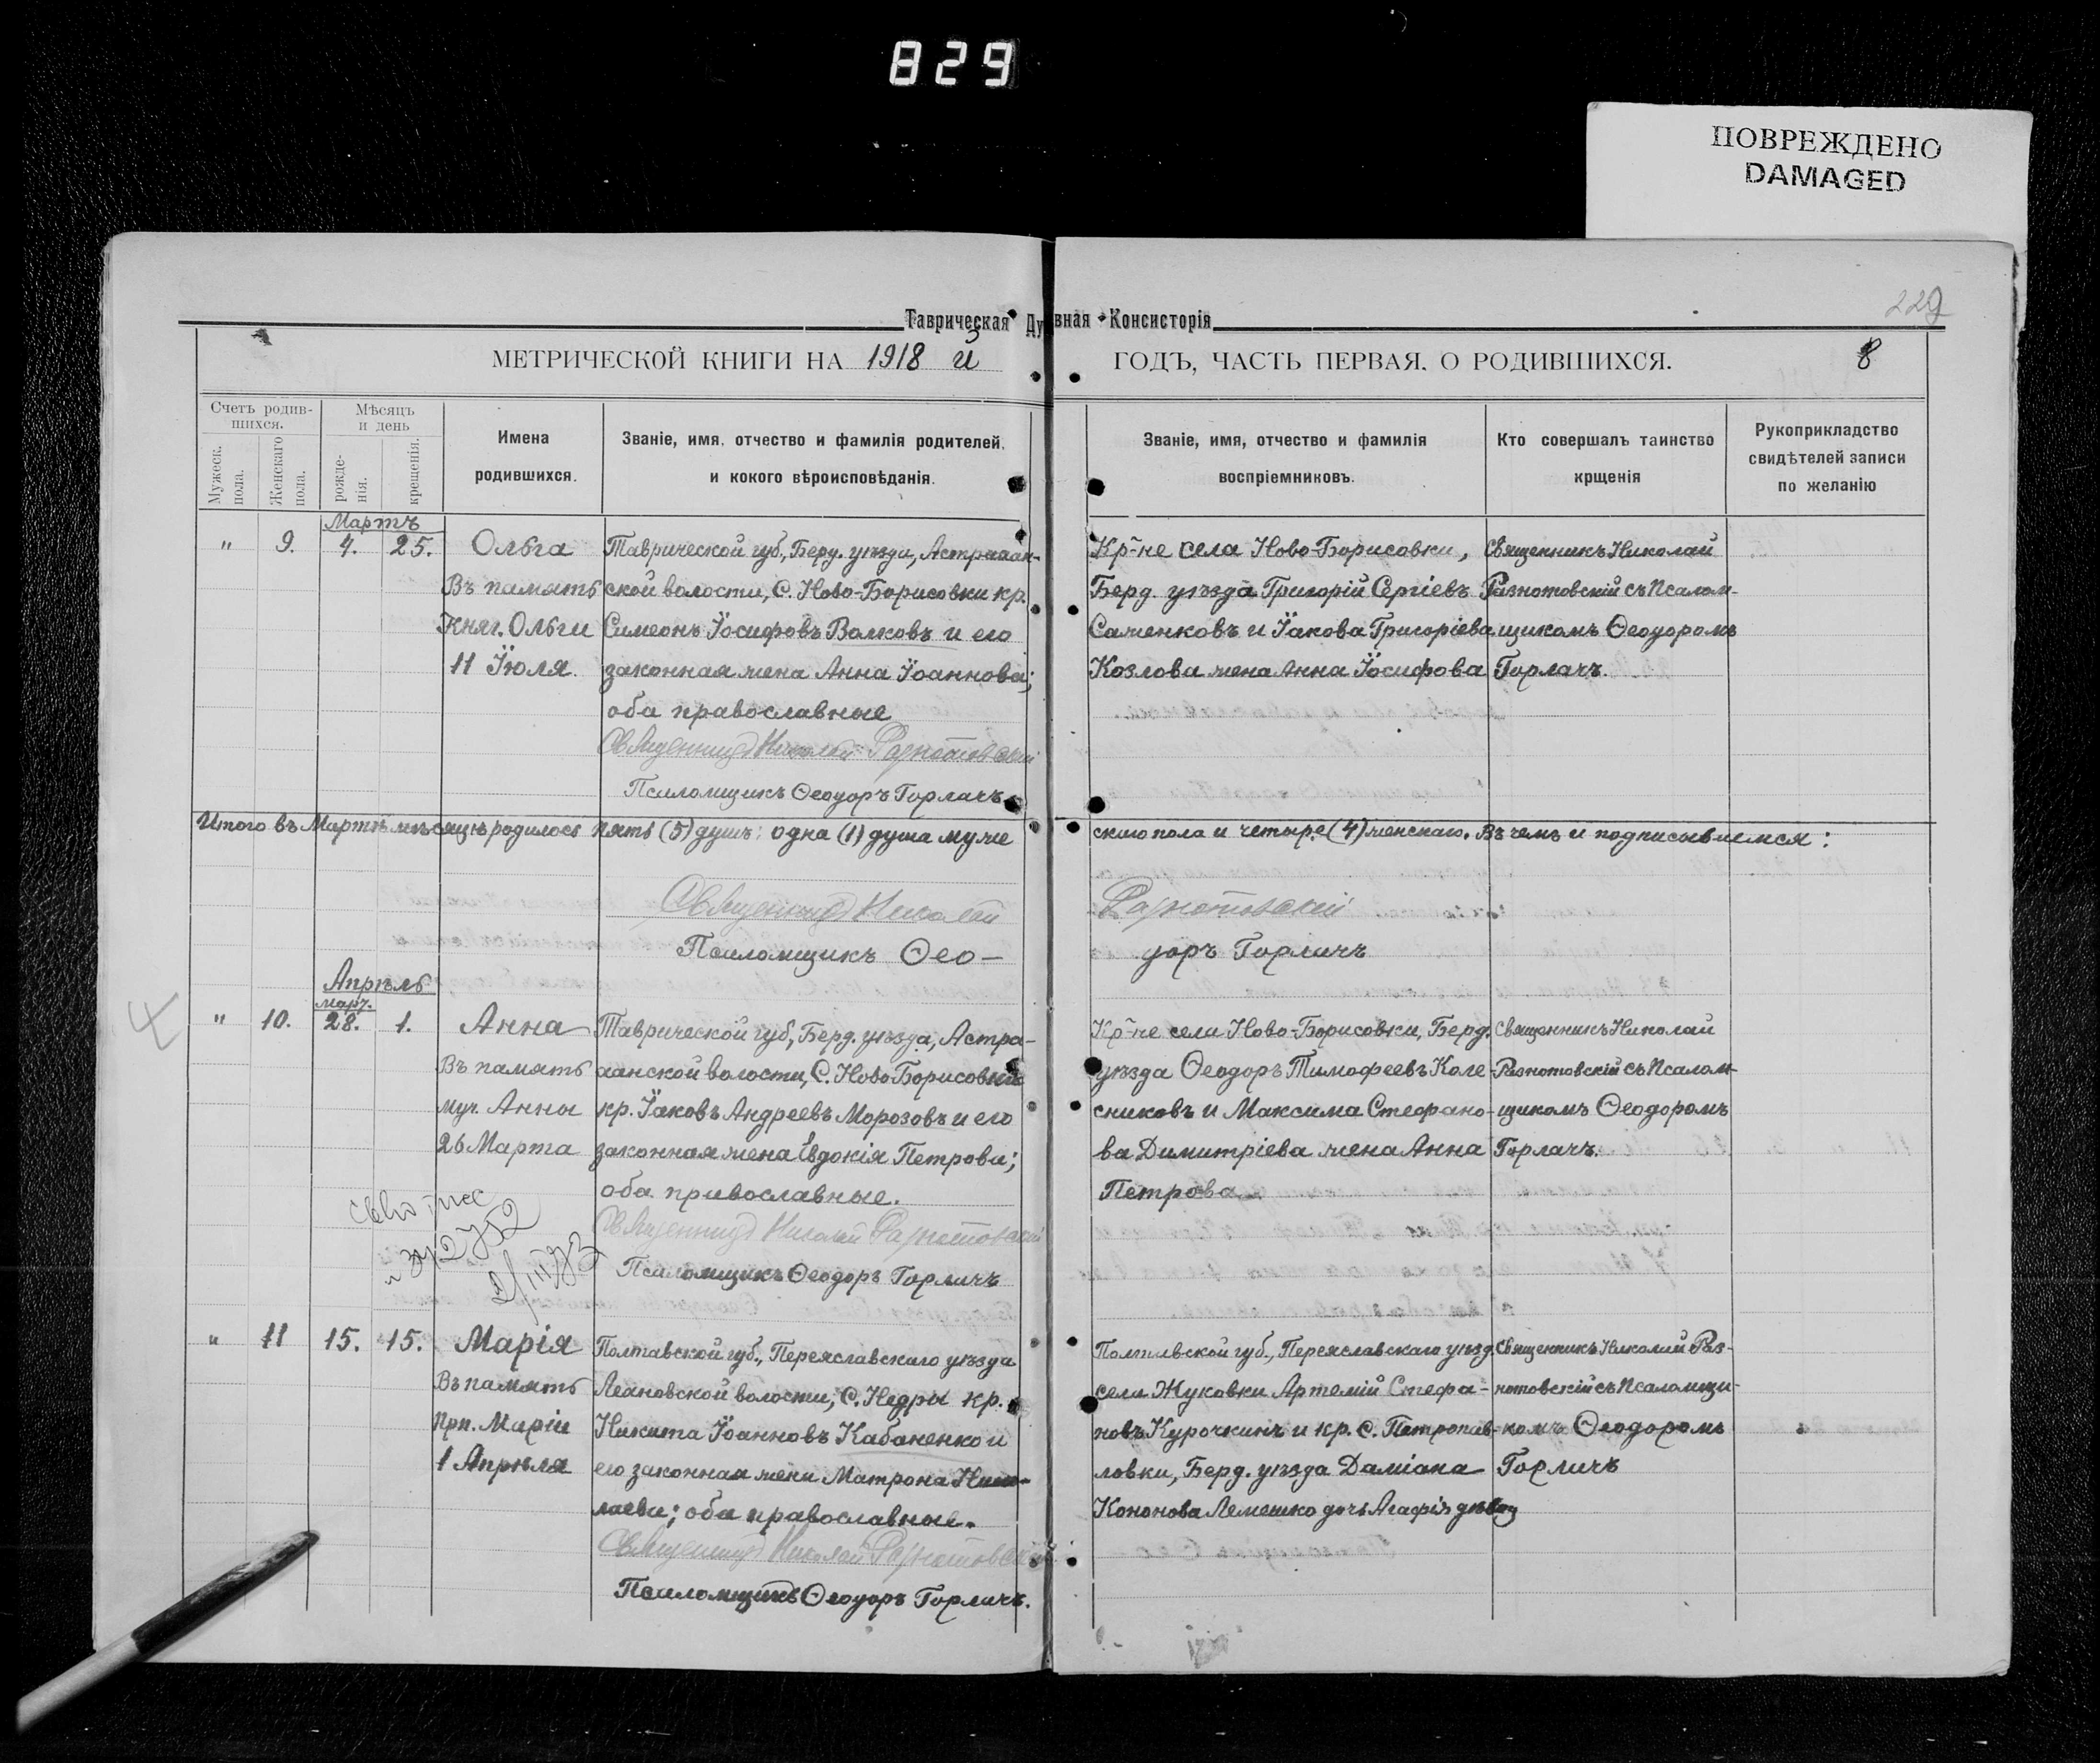 829
ПОВРЕЖДЕНО
DAMAGED
229
Таврическая Ду вная Консисторія
МЕТРИЧЕСКОЙ КНИГИ НА 1918 й
ГОДЪ, ЧАСТЬ ПЕРВАЯ. О РОДИВШИХСЯ.
8
Счетъ родив-
шихся.
Мужеск.
пола.
Женскаго
пола.
Мѣсяцъ
и день
рожде-
нія.
крещенія.
Имена
родившихся.
Званіе, имя, отчество и фамилія родителей,
и кокого вѣроисповѣданія.
Званіе, имя, отчество и фамилія
воспріемниковъ.
Кто совершалъ таинство
крщенія
Рукоприкладство
свидѣтелей записи
по желанію
Мартъ
" 9. 4. 25.
Ольга
Въ память
Княг. Ольги
11 Їюля.
Таврической губ., Берд. уѣзда, Астрахан-
ской волости, С. Ново-Борисовки кр.
Симеонъ Їосифовъ Волковъ и его
законная жена Анна Їоаннова;
оба православные
Священникъ Николай Разнотовскій
Псаломщикъ Ѳеодоръ Горлачъ
Кр-не села Ново-Борисовки,
Берд. уѣзда Григорій Сергіевъ
Саженковъ и Їакова Григоріева
Козлова жена Анна Їосифова
Священникъ Николай
Разнотовскій съ Псалом-
щикомъ Ѳеодоромъ
Горлачъ.
Итого въ Мартѣ мѣсяцѣ родилось пять (5) душъ: одна (1) душа муже
скаго пола и четыре (4) женскаго. Въ чемъ и подписываемся:
Священникъ Николай
Разнотовскій
Псаломщикъ Ѳео-
доръ Горлачъ
Апрѣль
март.
" 10. 28. 1.
Анна
Въ память
муч. Анны
26 Марта
Таврической губ., Берд. уѣзда, Астра-
ханской волости, С. Ново Борисовки
кр. Їаковъ Андреевъ Морозовъ и его
законная жена Евдокія Петрова;
оба православные.
Священникъ Николай Разнотовскій
Псаломщикъ Ѳеодоръ Горлачъ
Кр-не села Ново-Борисовки, Берд.
уѣзда Ѳеодоръ Тимофеевъ Коле-
сниковъ и Максима Стефано-
ва Димитріева жена Анна
Петрова
Священникъ Николай
Разнотовскій съ Псалом-
щикомъ Ѳеодоромъ
Горлачъ.
" 11 15. 15.
Марія
Въ память
Прп. Маріи
1 Апрѣля
Полтавской губ., Переяславскаго уѣзда
волости, С. Недры кр.
Никита Їоанновъ Кабаненко и
его законная жена Матрона Нико-
лаева; оба православные.
Священникъ Николай Разнотовскій
Псаломщикъ Ѳеодоръ Горлачъ.
Полтавской губ., Переяславскаго уѣзд.
села Жуковки Артемій Стефа-
новъ Курочкинъ и кр. С. Петропав-
ловки, Берд. уѣзда Даміана
Кононова Лемешко дочь Агафія дѣвица
Священникъ Николай Раз-
нотовскій съ Псаломщи-
комъ Ѳеодоромъ
Горлачъ